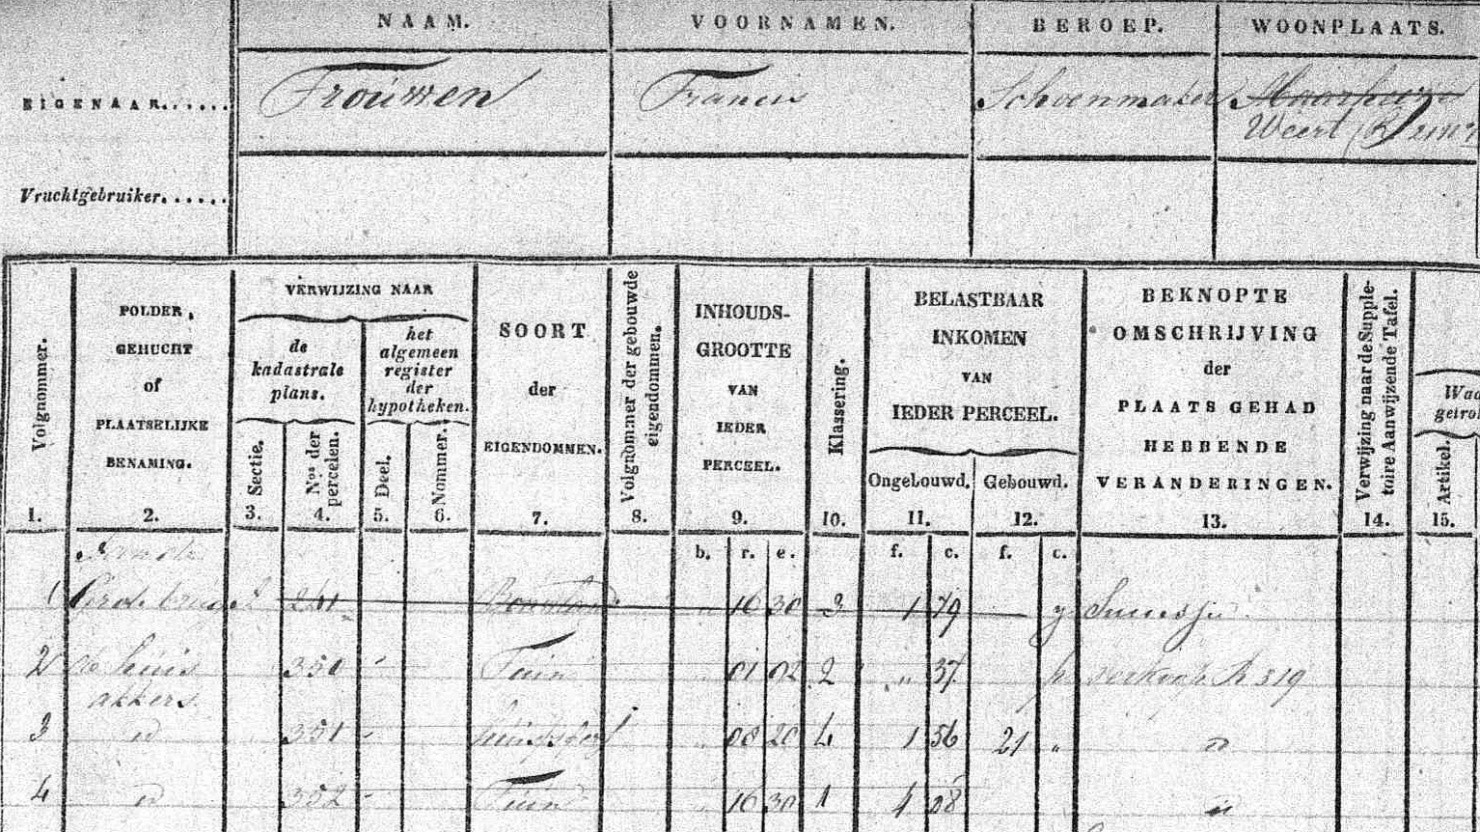 NAAM. VOORNAMEN. BEROEP. WOONPLAATS.
EIGENAAR...... Trouwen Francis Schoenmaker
Weert
Vruchtgebruiker......
Volgnommer.
1.
POLDER,
GEHUCHT
of
PLAATSELIJKE
BENAMING.
2.
VERWIJZING NAAR
de
kadastrale
plans.
Sectie.
3.
Nos der
percelen.
4.
het
algemeen
register
der
hypotheken.
Deel.
5.
Nommer.
6.
SOORT
der
EIGENDOMMEN.
7.
Volgnommer der gebouwde
eigendommen.
8.
INHOUDS-
GROOTTE
VAN
IEDER
PERCEEL.
9.
Klassering.
10.
BELASTBAAR
INKOMEN
VAN
IEDER PERCEEL.
Ongebouwd.
11.
Gebouwd.
12.
BEKNOPTE
OMSCHRIJVING
der
PLAATS GEHAD
HEBBENDE
VERANDERINGEN.
13.
Verwijzing naar de Supple-
toire Aanwijzende Tafel.
14.
Artikel.
15.
b. r. e. f. c. f. c.
1 241 Bouwland 16 30 3 1 79
2 huis 350 Tuin 01 02 2 " 37 verkoop R 319
akkers
3 351 08 20 4 1 56 21 "
4 352 Tuin 16 30 1 4 08